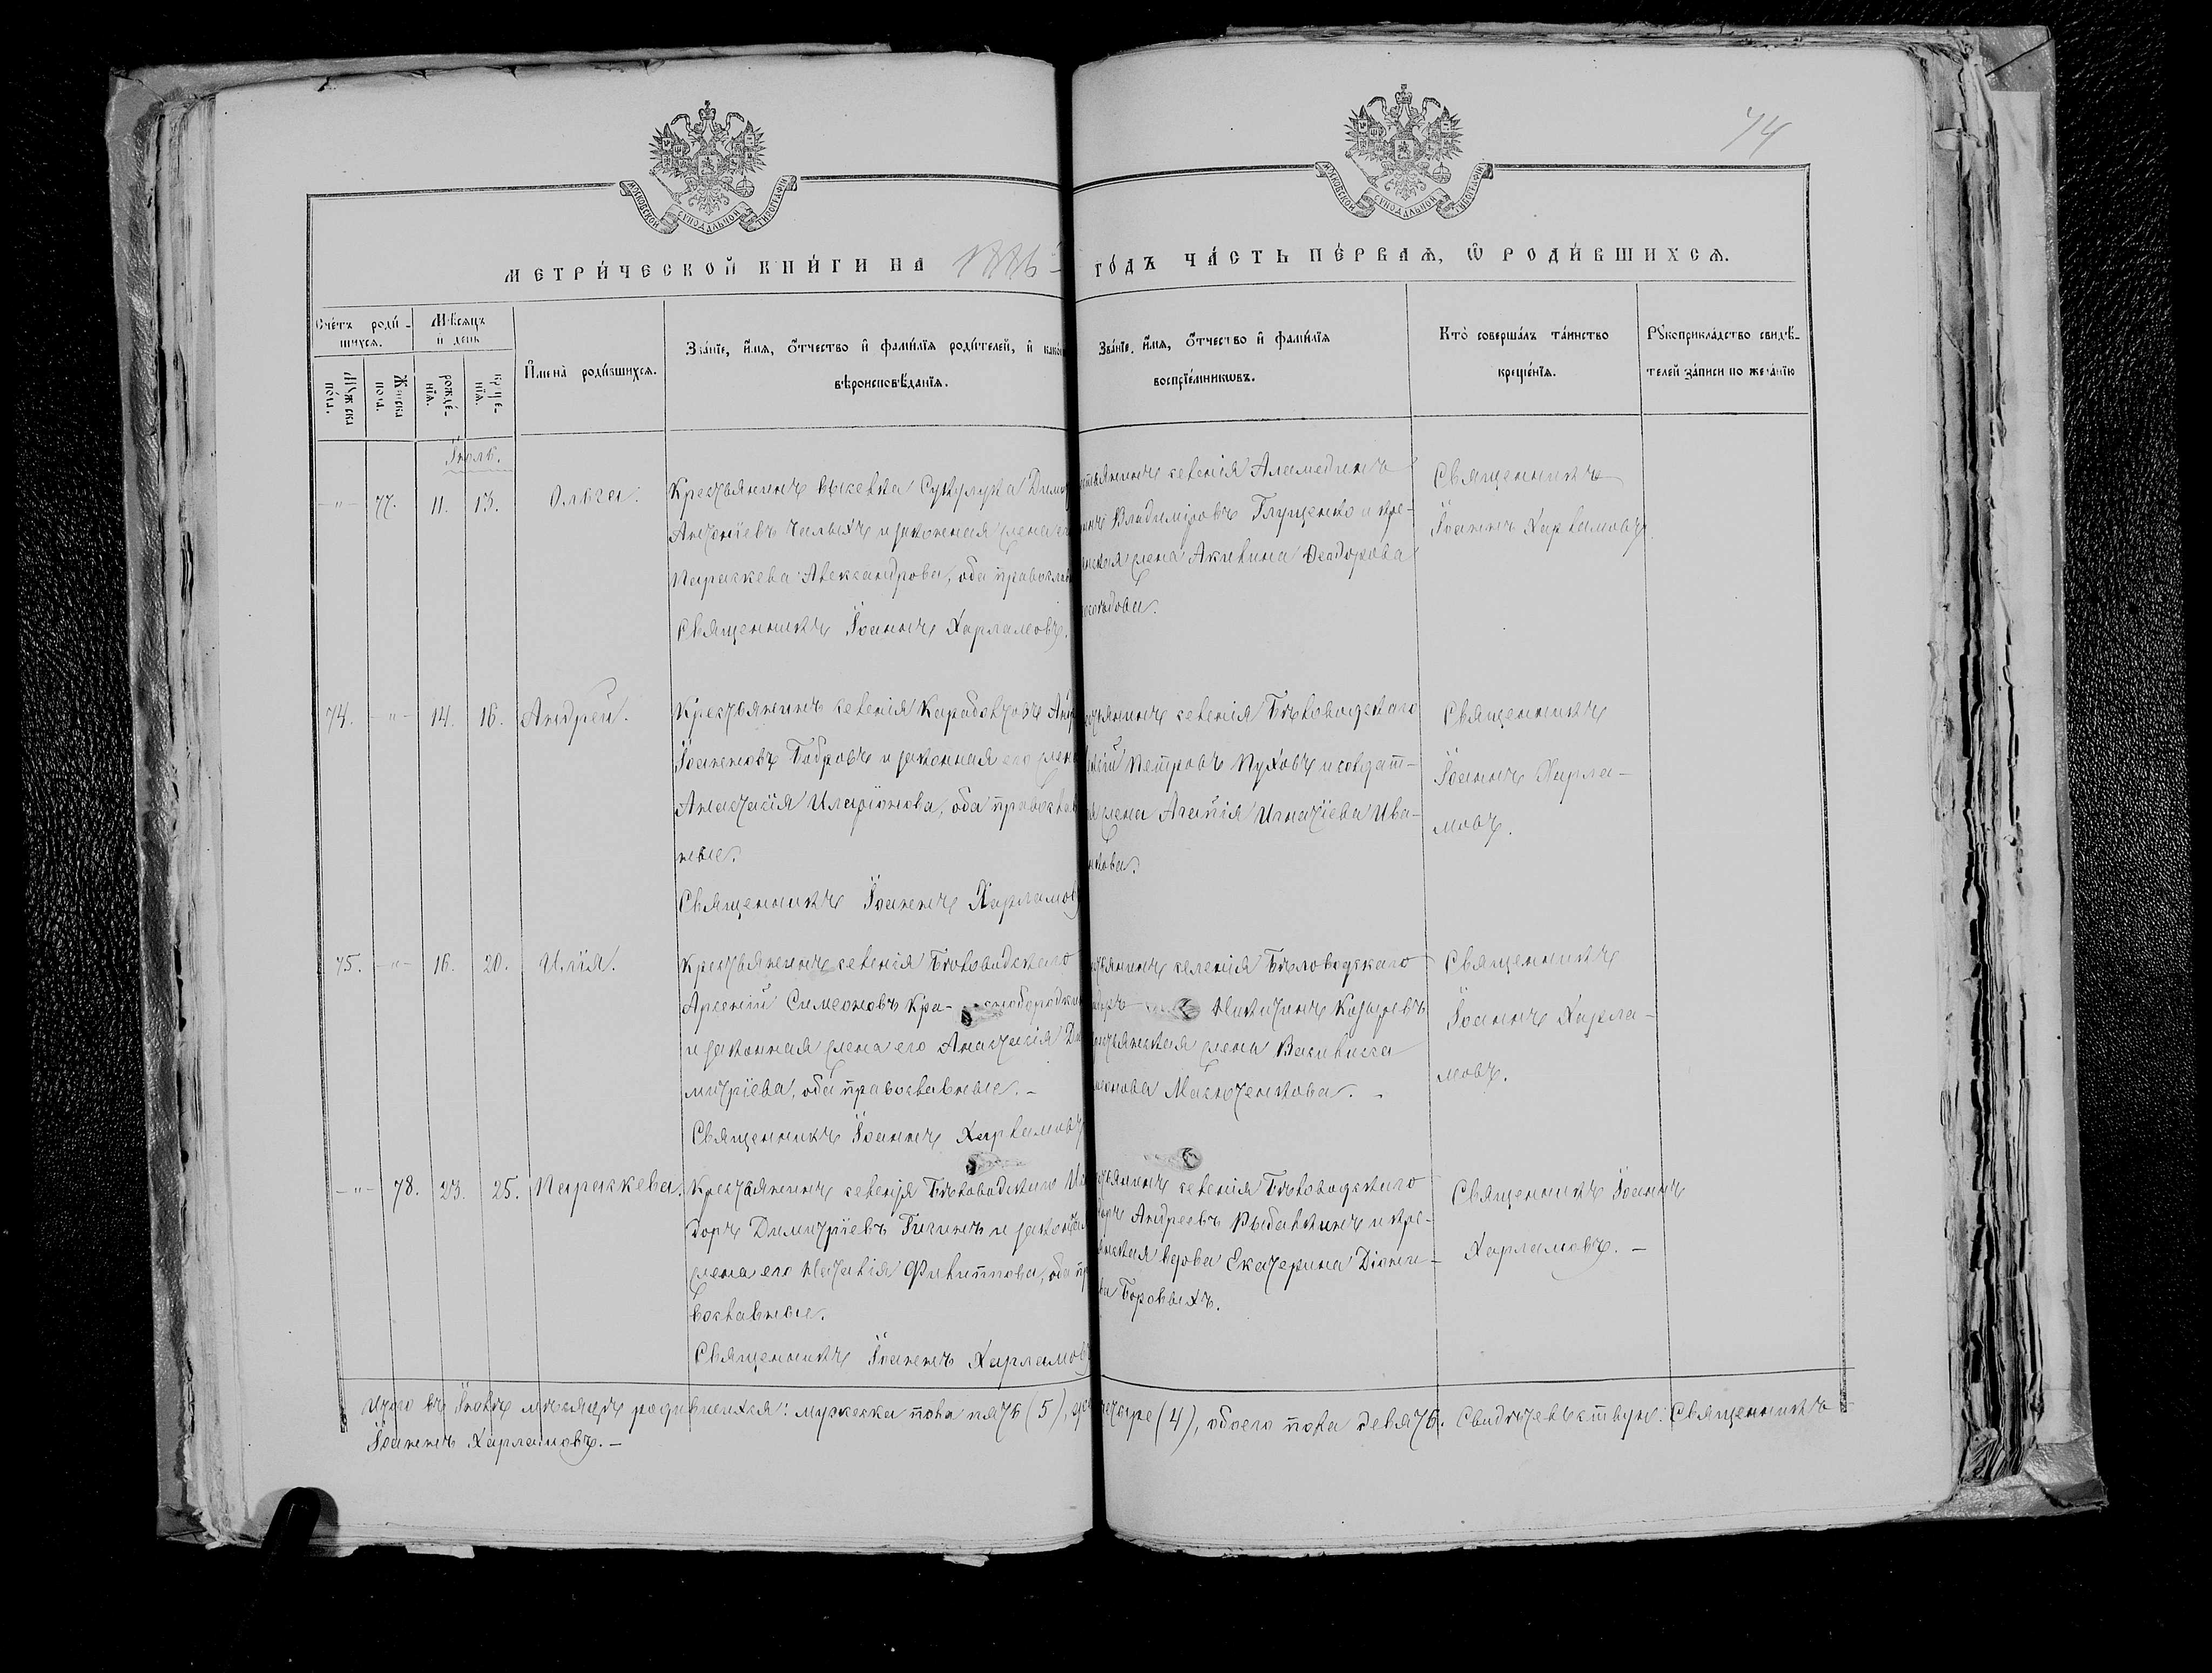 74
МОСКОВСКОЙ СУНОДАЛЬНОЙ ТИПОГРАФІИ
МОСКОВСКОЙ СУНОДАЛЬНОЙ ТИПОГРАФІИ
МЕТРИ́ЧЕСКОЙ КНИ́ГИ НА 1886 ГО́ДЪ ЧА́СТЬ ПЕ́РВАѦ, Ѡ҆ РОДИ́ВШИХСѦ.
Сче́тъ роди́-
шихся.
Мѣсяцъ
и день
Мꙋжска
пола.
Женска
пола.
рожде́-
нїѧ.
креще-
нїѧ.
Имена̀ роди́вшихсѧ.
Зва́нїе, и҆́мѧ, ѻ҆́тчество и҆ фами́лїѧ роди́телей, и҆ како́
вѣроисповѣ́данїѧ.
Зва́нїе, и҆́мѧ, ѻ҆́тчество и҆ фами́лїѧ
воспрїе́мникѡвъ.
Кто̀ соверша́лъ та́инство
креще́нїѧ.
Рꙋкоприкла́дство свидѣ́-
телей за́писи по жела́нїю
Іюль.
-"- 77. 11. 13. Ольга.
Крестьянинъ выселка Сукулука Дими
Антоніевъ Чалыхъ и законная жена ег
Параскева Александрова, оба православ
Священникъ Іоаннъ Харламовъ.
стьянинъ селенія Аламединъ
Владиміровъ Глущенко и кре-
янская жена Акилина Ѳеодорова
Священникъ
Іоаннъ Харламовъ.
74. -"- 14. 16. Андрей.
Крестьянинъ селенія Карабалтовъ Анд
Іоанновъ Бобровъ и законная его жен
Анастасія Иларіонова, оба православ
ные.
Священникъ Іоаннъ Харламов
стьянинъ селенія Бѣловодскаго
Петровъ Пуховъ и солдат-
ая жена Агапія Игнатіева Ива-
нкова.
Священникъ
Іоаннъ Харла-
мовъ.
75. -"- 16. 20. Илія.
Крестьянинъ селенія Бѣловодскаго
Арсеній Симеоновъ Кра- снобородкин
и законная жена его Анастасія Ди
митріева, оба православные. -
Священникъ Іоаннъ Харламовъ
стьянинъ селенія Бѣловодскаго
Никитинъ Козыревъ
стьянская жена Василисса
Масюченкова. -
Священникъ
Іоаннъ Харла-
мовъ.
-"- 78. 23. 25. Параскева.
Крестьянинъ селенія Бѣловодскаго Иси
доръ Димитріевъ Гигинъ и законная
жена его Наталія Филиппова, оба пр
вославные.
Священникъ Іоаннъ Харламов
стьянинъ селенія Бѣловодскаго
Андреевъ Рыбалкинъ и кре-
янская вдова Екатерина Діони-
ва Боровыхъ.
Священникъ Іоаннъ
Харламовъ. -
Итого въ Іюлѣ мѣсяцѣ родившихся: мужеска пола пять (5), же четыре (4), обоего пола девять. Свидѣтельствую: Священникъ
Іоаннъ Харламовъ. -